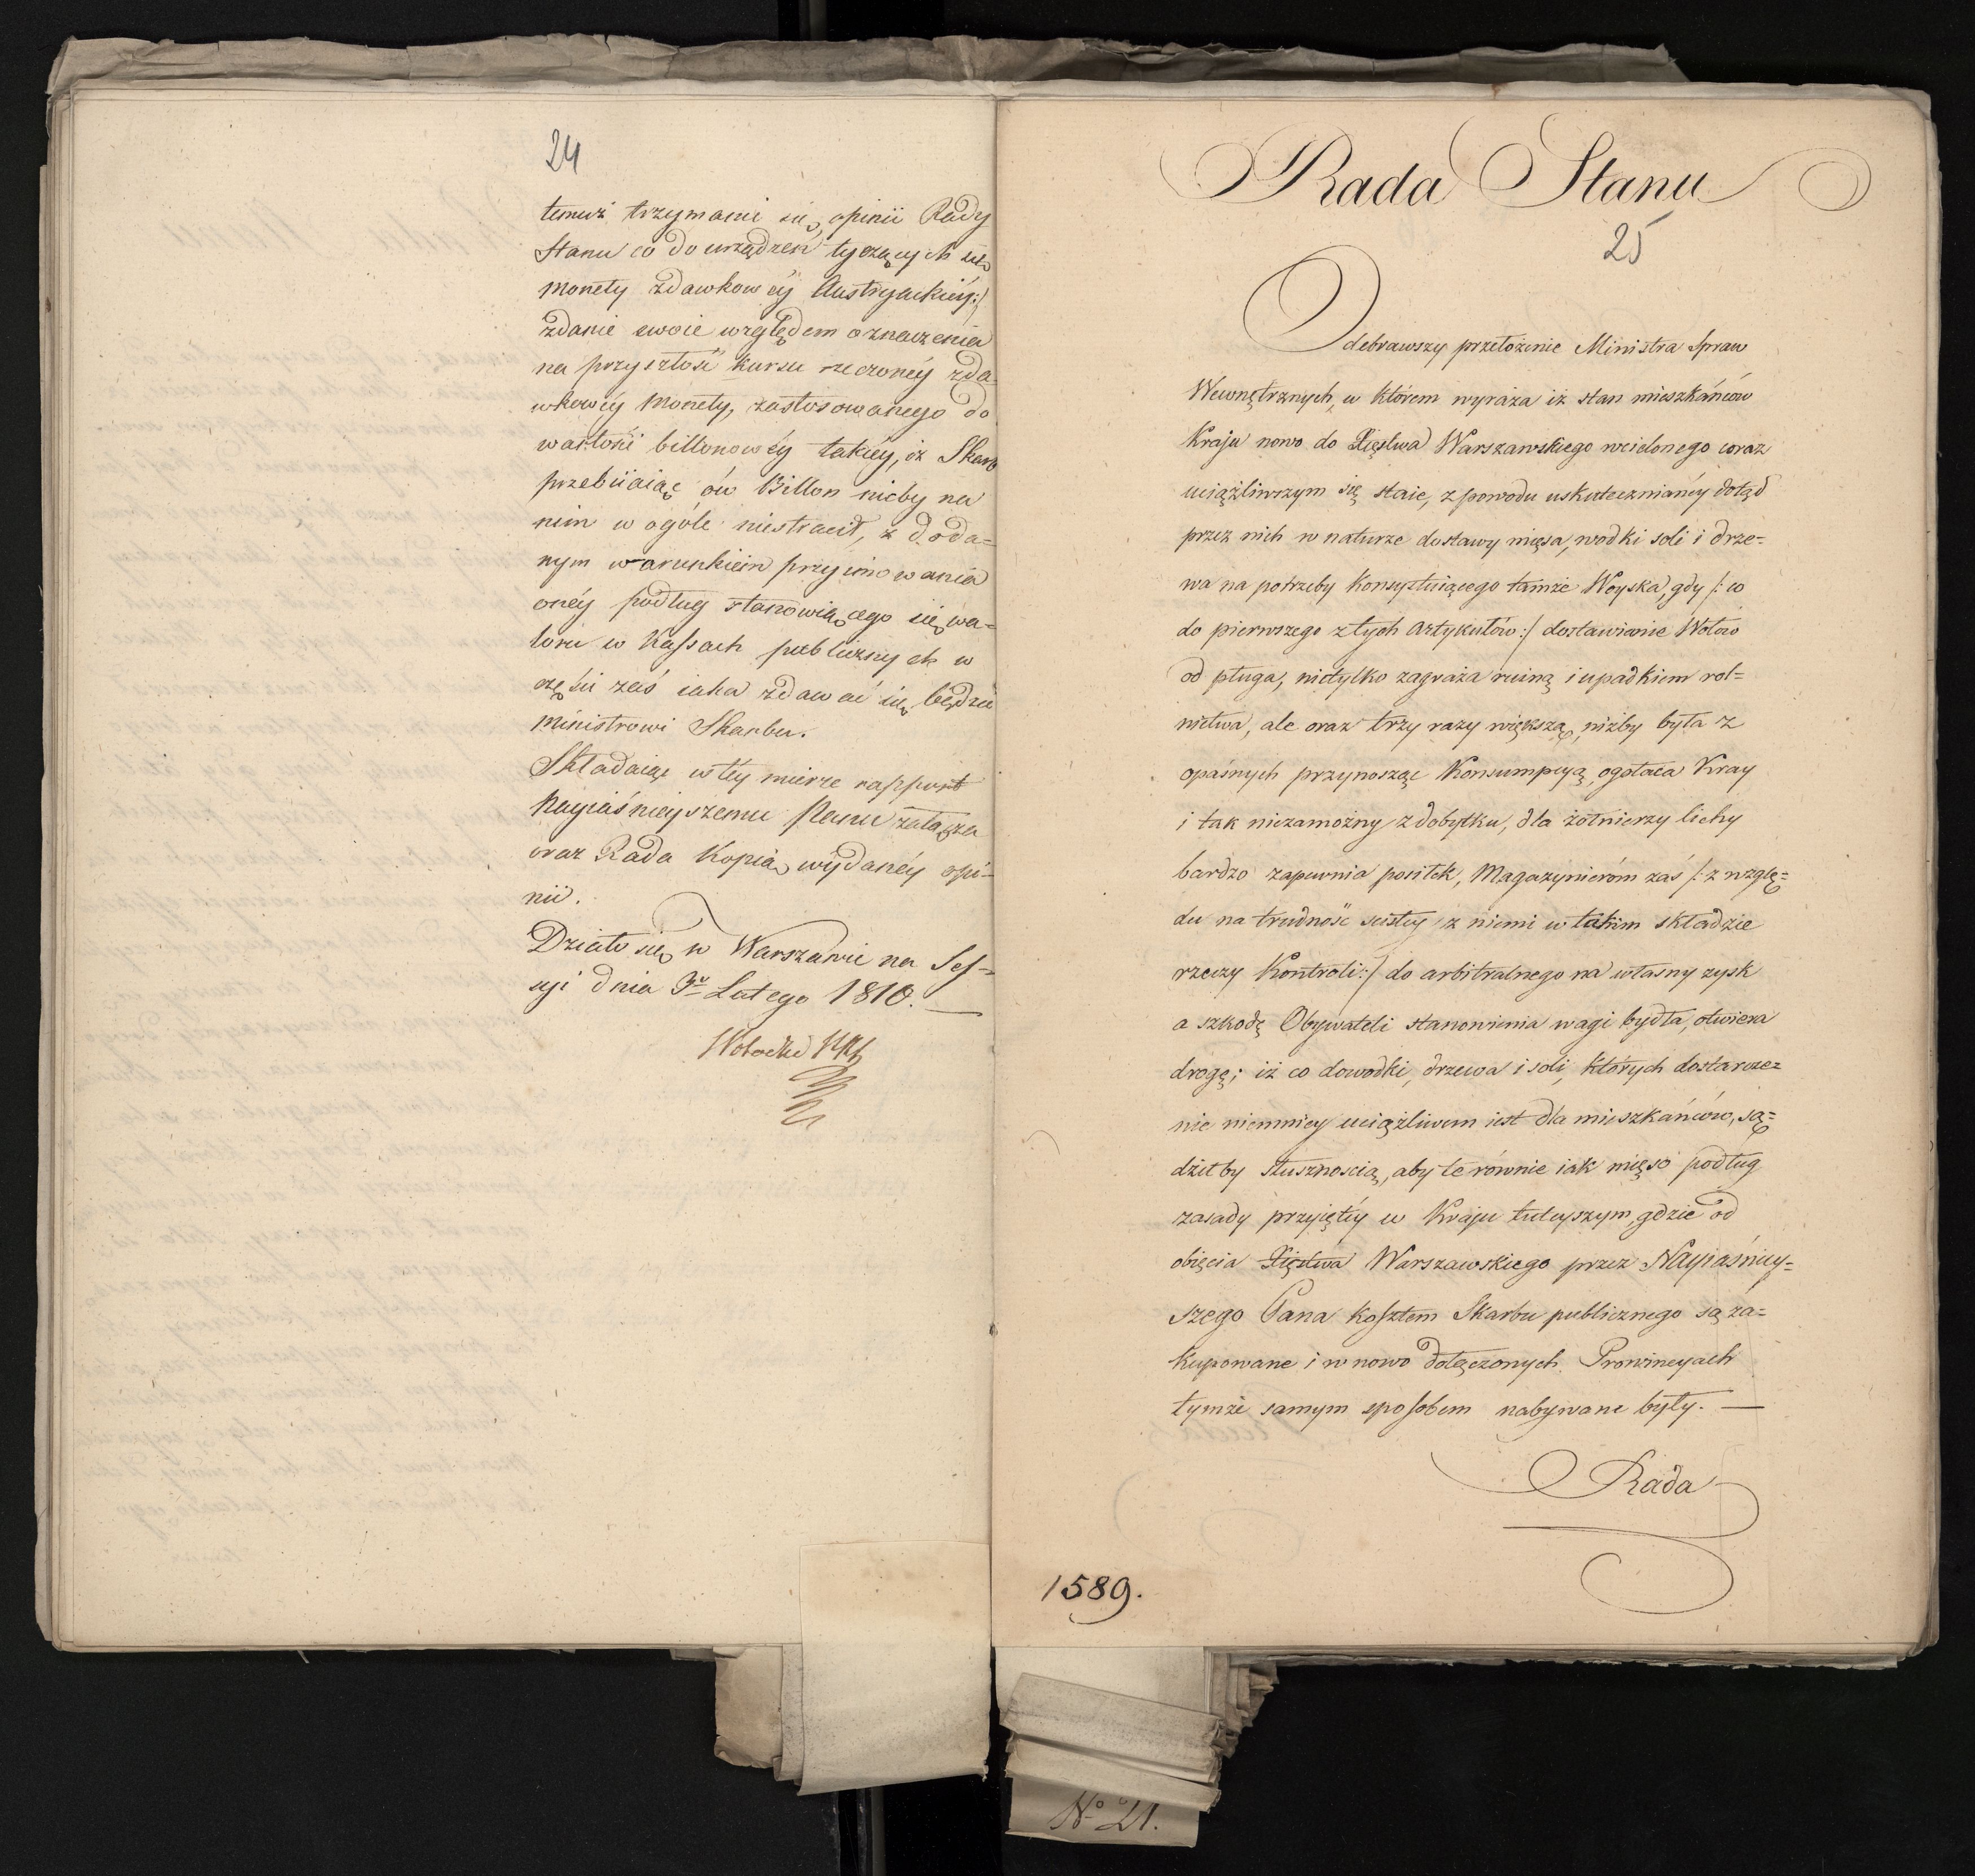 24
temuż trzymanie się opinii Rady
Stanu co do urządzeń tyczących się
monety zdawkowéy Austryackiéy:/
zdanie swoie względem oznaczenia
na przyszłość kursu rzeczonéy zda-
wkowéy monety, zastosowanego do
wartości billonowéy takiéy, iż Skarb
przebiiaiąc ów Billon nicby na
nim w ogóle niestracił, z doda=
nym warunkiem przyimowania
onéy podług stanowiącego się wa=
loru w Kassach publicznych w
części zaś iaka zdawać się będzie
Ministrowi Skarbu.
Składaiąc w téy mierze rapport
Nayiaśnieyszemu Panu załącza
oraz Rada Kopią wydanéy opi-
nii.
Działo się w Warszawie na Ses=
syi dnia 3º Lutego 1810.
Rada Stanu
25
Odebrawszy przełożenie Ministra Spraw
Wewnętrznych, w którem wyraża iż stan mieszkańców
Kraju nowo do Xięstwa Warszawskiego wcielonego coraz
uciążliwszym się staie, z powodu uskuteczniańey dotąd
przez nich w naturze dostawy mięsa, wodki soli i drze=
wa na potrzeby Konsystuiącego tamże Woyska, gdy /: co
do pierwszego z tych Artykułów :/ dostawienie Wołów
od pługa, nietylko zagraża ruiną i upadkiem rol=
nictwa, ale oraz trzy razy większą, niżby była z
opaśnych przynosząc Konsumpcyą, ogołaca Kray
i tak niezamożny z dobytku, dla żołnierzy lichy
bardzo zapewnia posiłek, Magazynierom zaś /: z wzglę=
du na trudność scisłey z niemi w takim składzie
rzeczy Kontroli :/ do arbitralnego na własny zysk
a szkodę Obywateli stanowienia wagi bydła, otwiera
drogę; iż co do wodki, drzewa i soli, których dostarcze=
nie niemniey uciążliwem iest dla mieszkańców, są=
dziłby słusznoscią, aby te równie iak mięso podług
zasady przyiętéy w Kraju tuteyszym, gdzie od
obięcia Xięstwa Warszawskiego przez Nayiaśniey=
szego Pana kosztem Skarbu publicznego są za=
kupowane i w nowo dołączonych Prowincyach
tymże samym sposobem nabywane były. —
Rada
1589.
Nº 21.